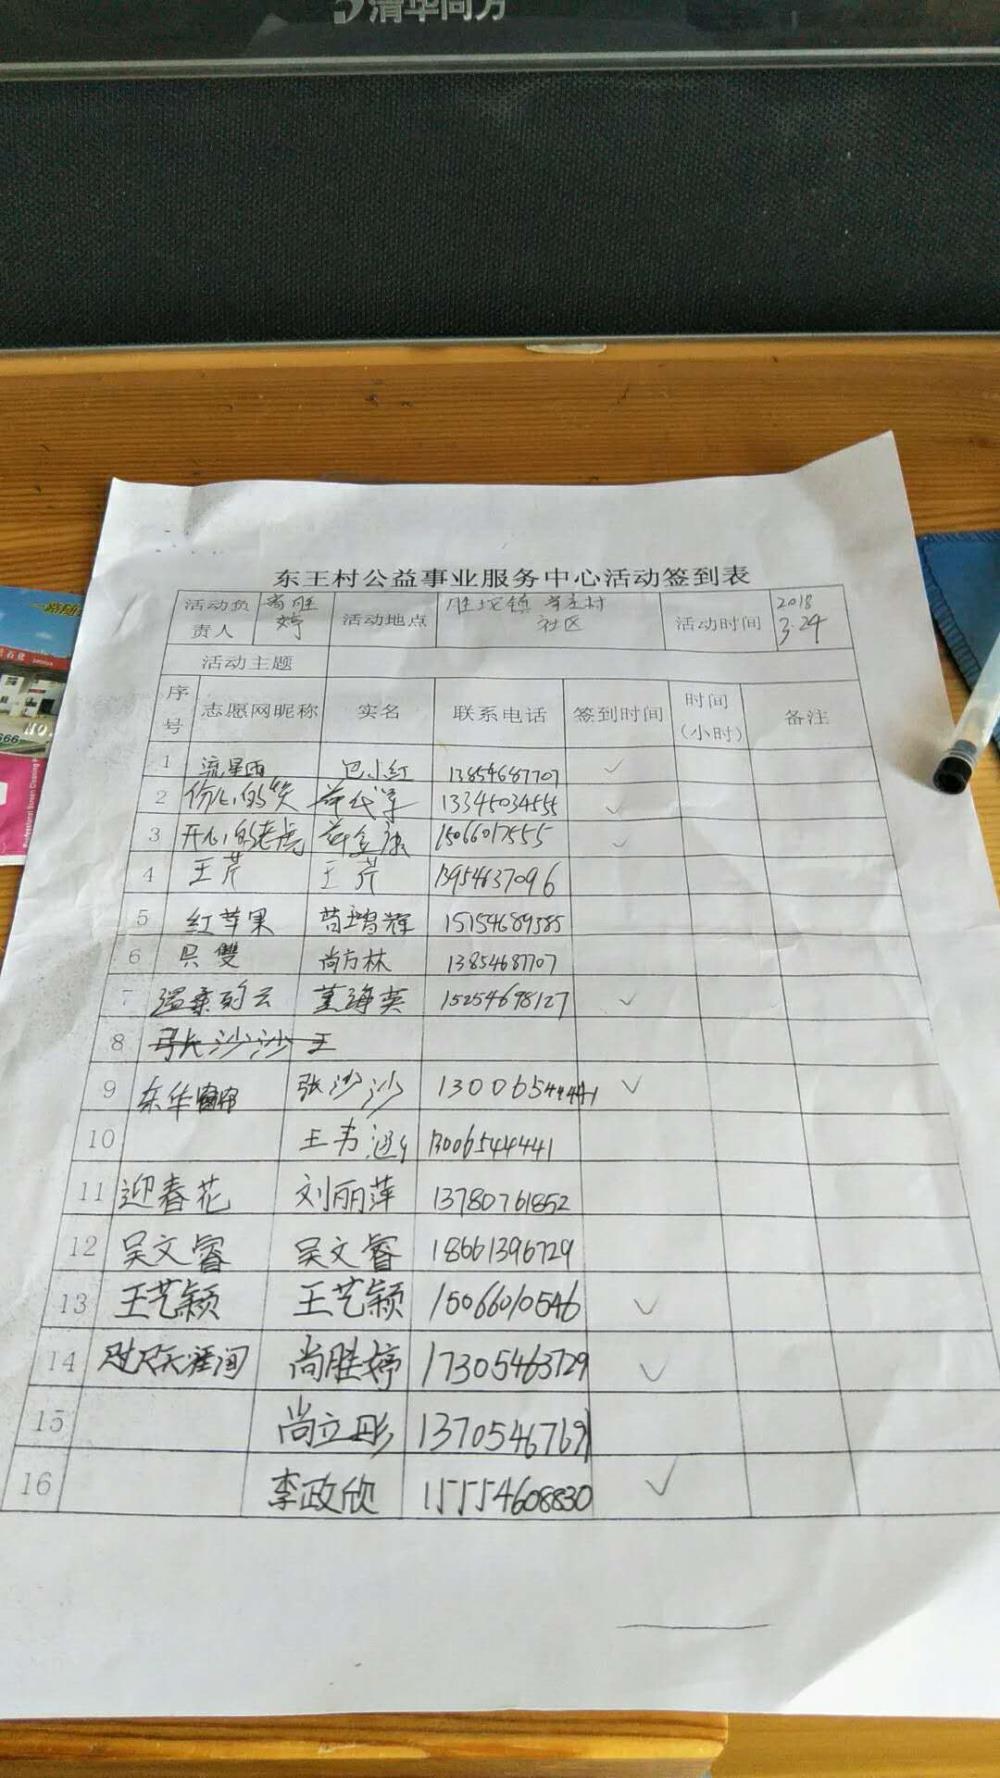 清华同方
东王村公益事业服务中心活动签到表
活动负责人 尚胜婷 活动地点 胜坨镇 村社区 活动时间 2018 3.24
活动主题
序号 志愿网昵称 实名 联系电话 签到时间 时间(小时) 备注
1 流星雨 巴小红 13854687707 ✓
2 13345034555 ✓
3 开心的老虎 15066017555 ✓
4 王芹 王芹 13954637096
5 红苹果 苗瑞辉 15154689585
6 只雙 尚方林 13854687707
7 温柔的云 董海英 15254698127 ✓
8 张沙沙 王
9 东华 张沙沙 13006544441 ✓
10 王韦 13006544441
11 迎春花 刘丽萍 13780761852
12 吴文睿 吴文睿 18661396729
13 王艺颖 王艺颖 15066010546 ✓
14 咫尺天涯间 尚胜婷 17305463729 ✓
15 尚立彤 1370546769
16 李政欣 15554608830 ✓